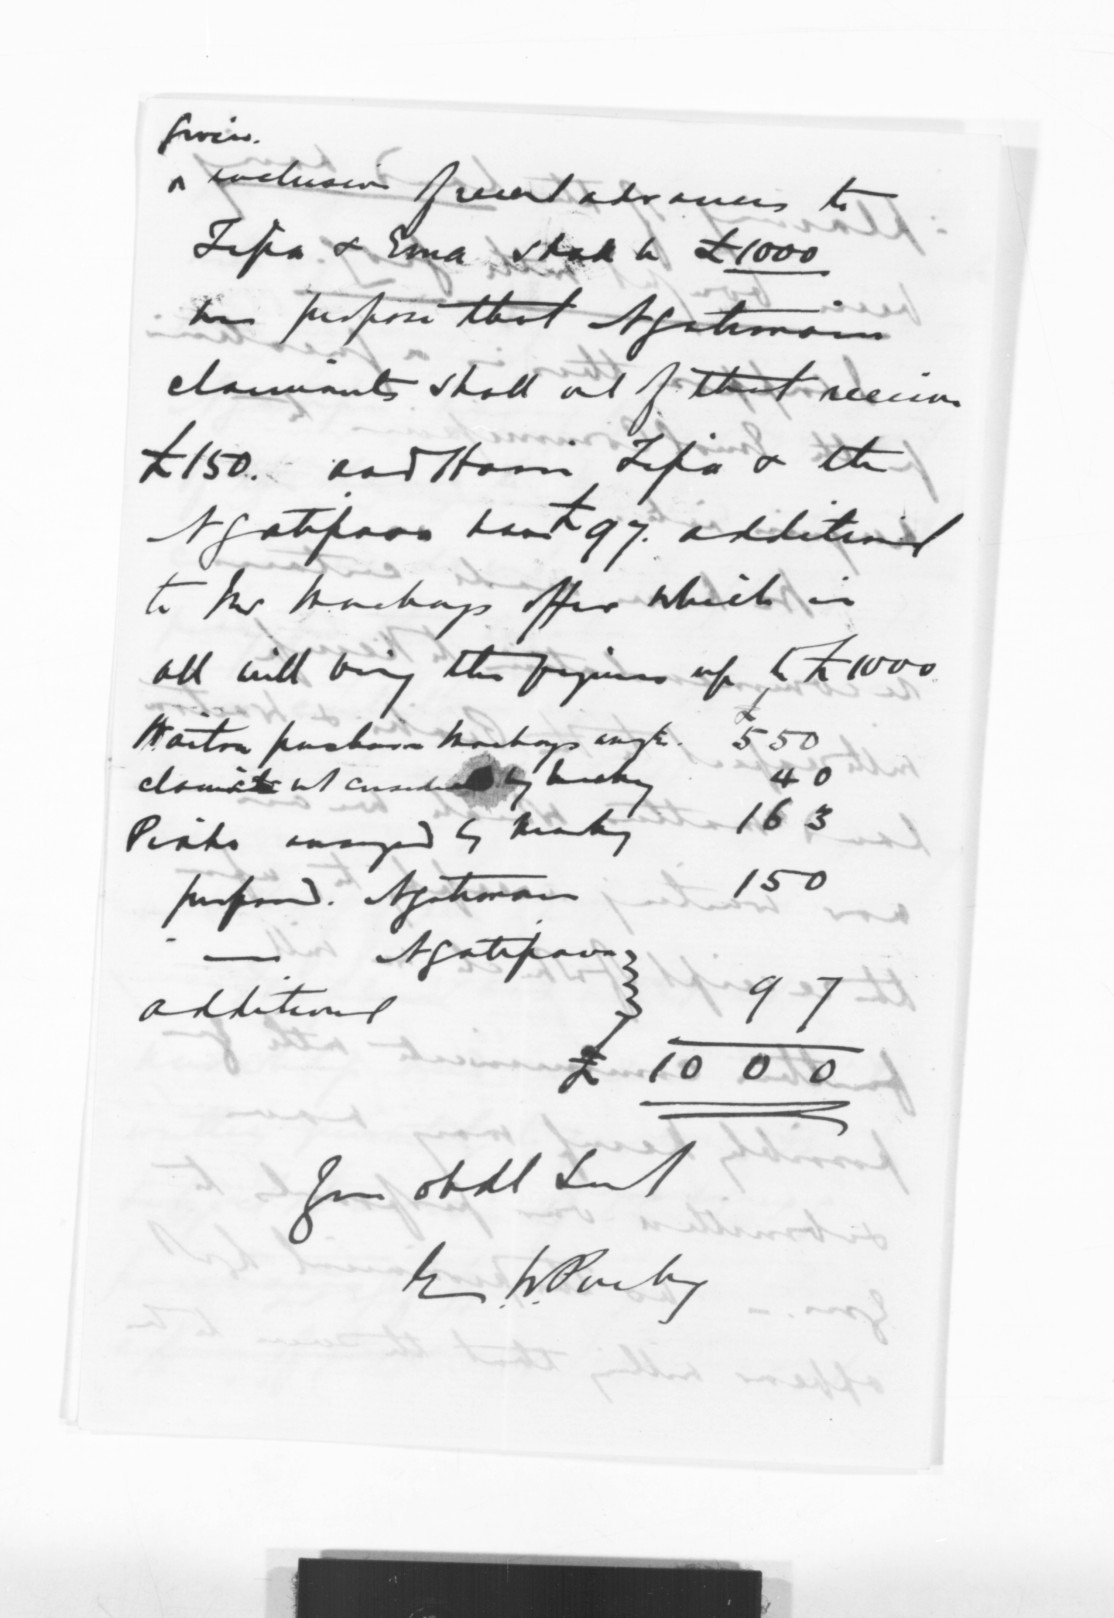 given.
^ inclusive of recent advances to
Tipa & Ema shall be £1000
we propose that Ngatimaru
claimants shall out of that receive
£150. and Hoani Tipa & the
Ngatipaoa have £97. additional
to Mr Mackays offer which in
all will bring the figures up to £1000
Waitoa purchase Mackays £550
claimants not by Mackay 40
Piako arranged by Mackay 163
proposed. Ngatimaru 150
" — Ngatipaoa }
additional } 97
£ 1000
Your obdt Servt
E. W. Puckey